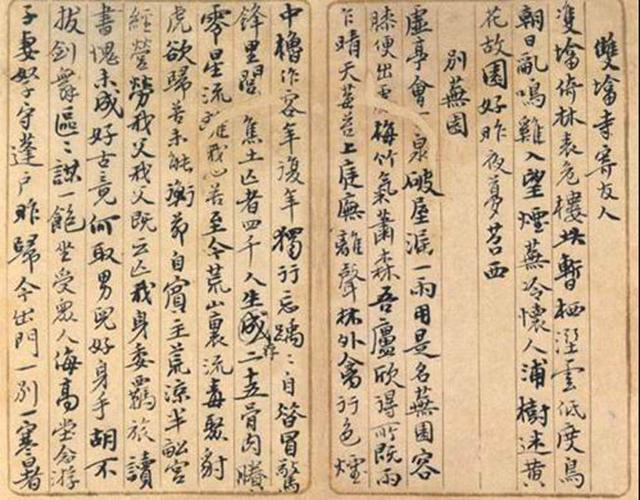 雙塔寺寄友人
雙塔倚林表危樓共暫栖溼雲低度鳥
朝日亂鳴雞入望煙蕪冷懷人浦樹迷黃
花故園好昨夜夢苕西
別蕪園
虛亭會一泉破屋漏一雨用是名蕪園容
膝便出處梅竹氣蕭森吾廬欣得所既雨
乍晴天莓苔上庭廡離聲林外禽行色煙
中櫓作客年復年獨行忘踽々自咎冒驚
鋒里閭焦土亡者四千人生成存二十五骨肉賸
零星流離我心苦至今荒山裏流毒聚豺
虎欲歸苦未能衡茆自賓主荒涼半畝宮
經營勞我父我父既云亡我身委羈旅讀
書愧未成好古竟何取男兒好身手胡不
拔劍舞區々謀一飽坐受眾人侮高堂念游
子妻孥守蓬戶昨歸今出門一別一寒暑